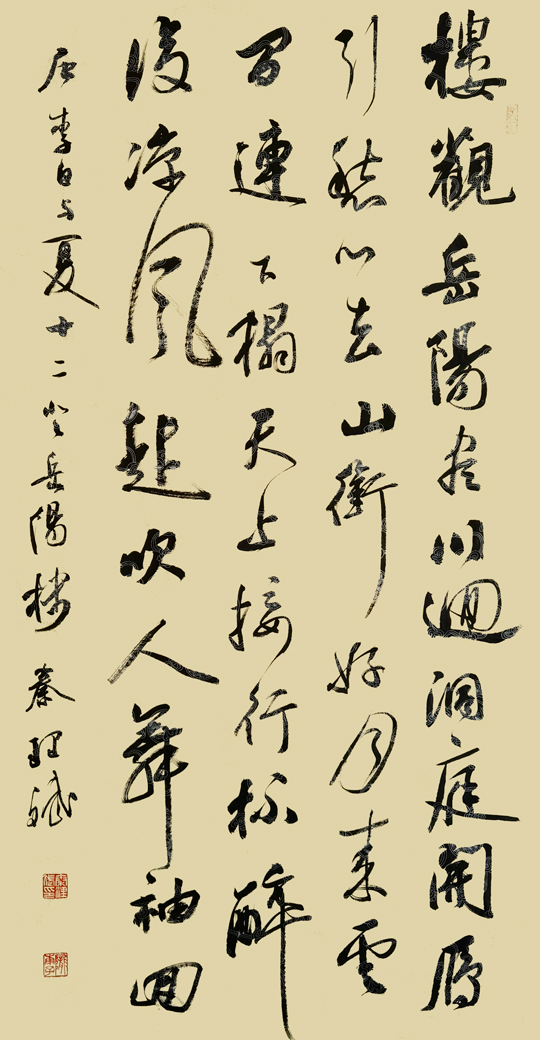 樓觀岳陽尽川迴洞庭開雁
引愁心去山銜好月来雲
間連下榻天上接行杯醉
後凉風起吹人舞袖回
唐李白与夏十二登岳陽楼 秦理斌